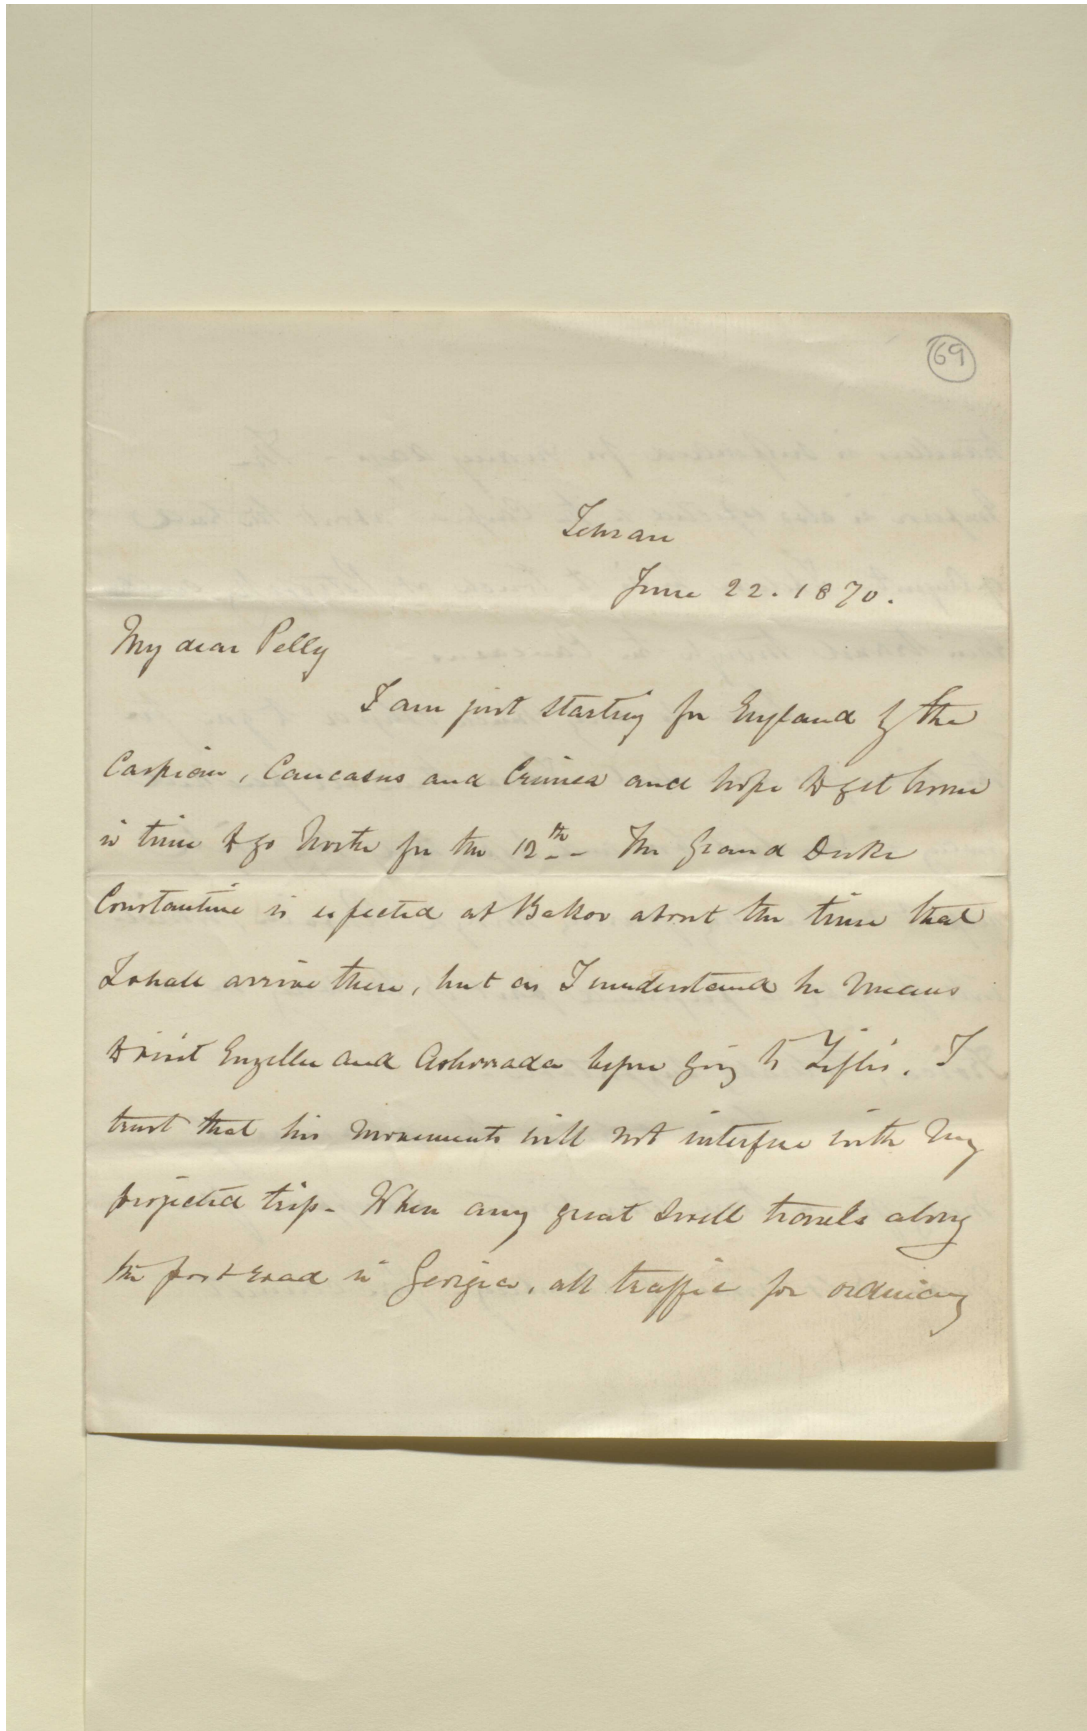 69
Tehran
June 22. 1870.
My dear Pelly
I am just starting for England by the
Caspian, Caucasus and Crimea and hope to get home
in time to go North for the 12th - The Grand Duke
Constantine is expected at Bakou about the time that
I shall arrive there, but as I understand he means
to visit Enzellee and Ashourada before going to Tiflis, I
trust that his movements will not interfere with my
projected trip - When any great swell travels along
the post road in Georgia, all traffic for ordinary